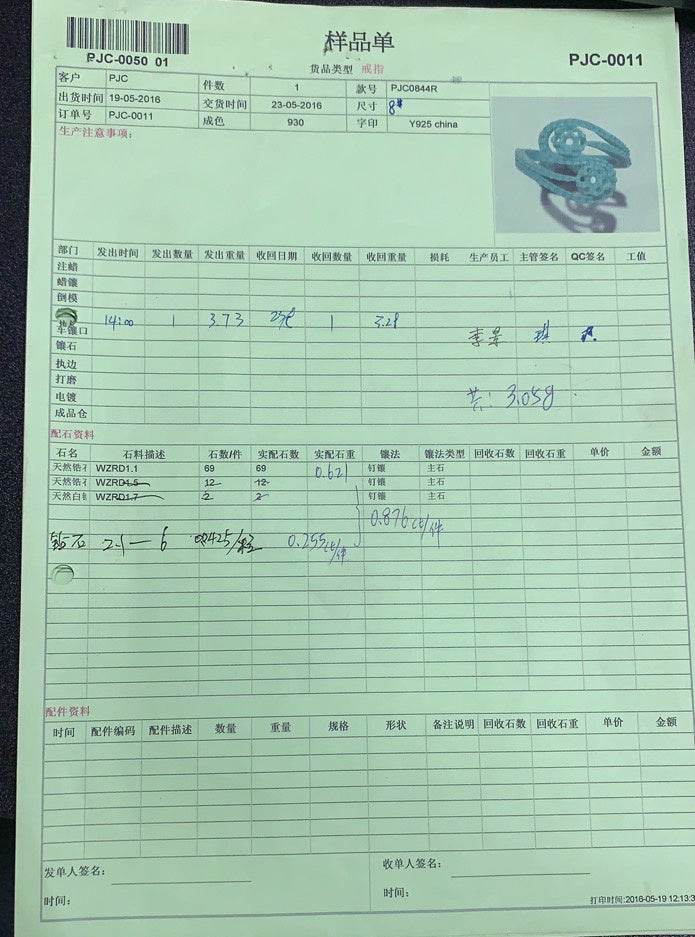 样品单
PJC-0050 01
PJC-0011
货品类型 戒指
客户 PJC 件数 1 款号 PJC0844R
出货时间 19-05-2016 交货时间 23-05-2016 尺寸 8#
订单号 PJC-0011 成色 930 字印 Y925 china
生产注意事项:
部门 发出时间 发出数量 发出重量 收回日期 收回数量 收回重量 损耗 生产员工 主管签名 QC签名 工值
注蜡
蜡镶
倒模
14:00 1 3.73 1
车镶口
镶石
执边
打磨
电镀 共: 3.05g
成品仓
配石资料
石名 石料描述 石数/件 实配石数 实配石重 镶法 镶法类型 回收石数 回收石重 单价 金额
天然锆石 WZRD1.1 69 69 0.621 钉镶 主石
天然锆石 WZRD1.5 12 12 钉镶 主石
天然白 WZRD1.7 2 2 钉镶 主石
0.876ct/件
钻石 2.1—6 0.0425/粒 0.255ct/件
配件资料
时间 配件编码 配件描述 数量 重量 规格 形状 备注说明 回收石数 回收石重 单价 金额
发单人签名: 收单人签名:
时间: 时间:
打印时间:2016-05-19 12:13:3